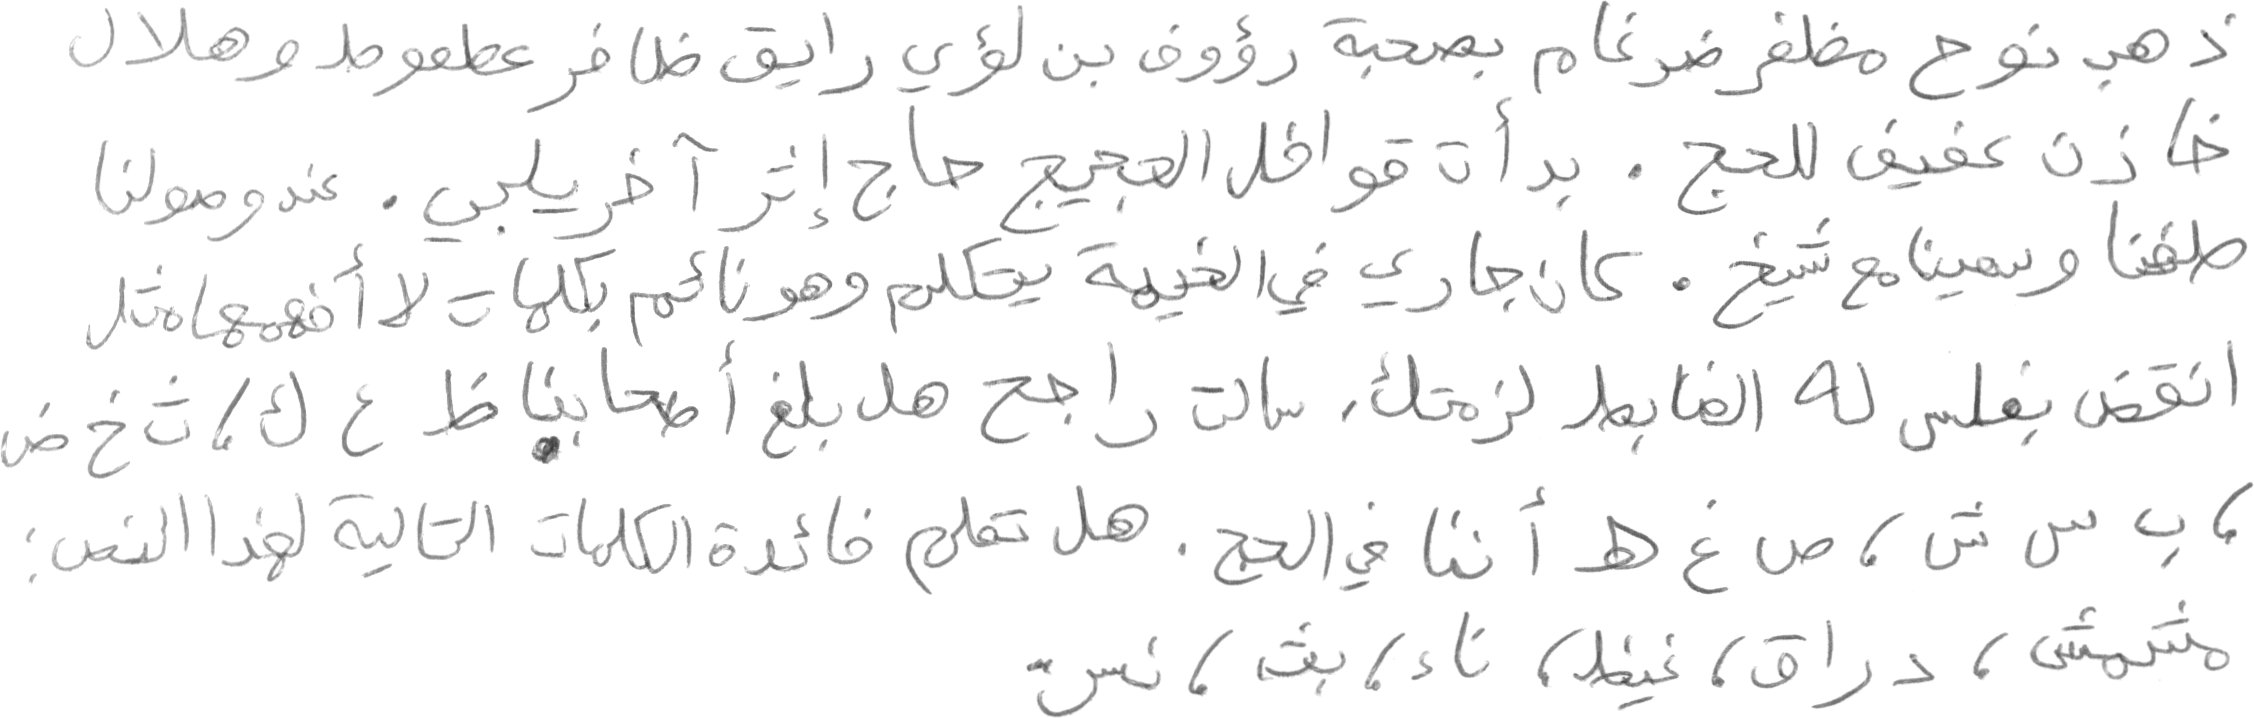 ذهب نوح مظفر ضرغام بصحبة رؤوف بن لؤي رايق ظافر عطعوط وهلال
خازن عفيف للحج . بدأت قوافل الحجيج حاج إثر آخر يلبي . عند وصولنا
طفنا وسعينا مع شيخ . كان جاري في الخيمة يتكلم وهو نائم بكلمات لا أفهمها مثل
انقض بغلس له الضابط لزمتك، سالت راجح هل بلغ أصحابنا ظ ع ك، ث خ ض
، ب س ش ، ص غ ط أننا في الحج . هل تعلم فائدة الكلمات التالية لهذا النص :
مشمش ، دراق ، غيظ، ناء ، بث ، نس